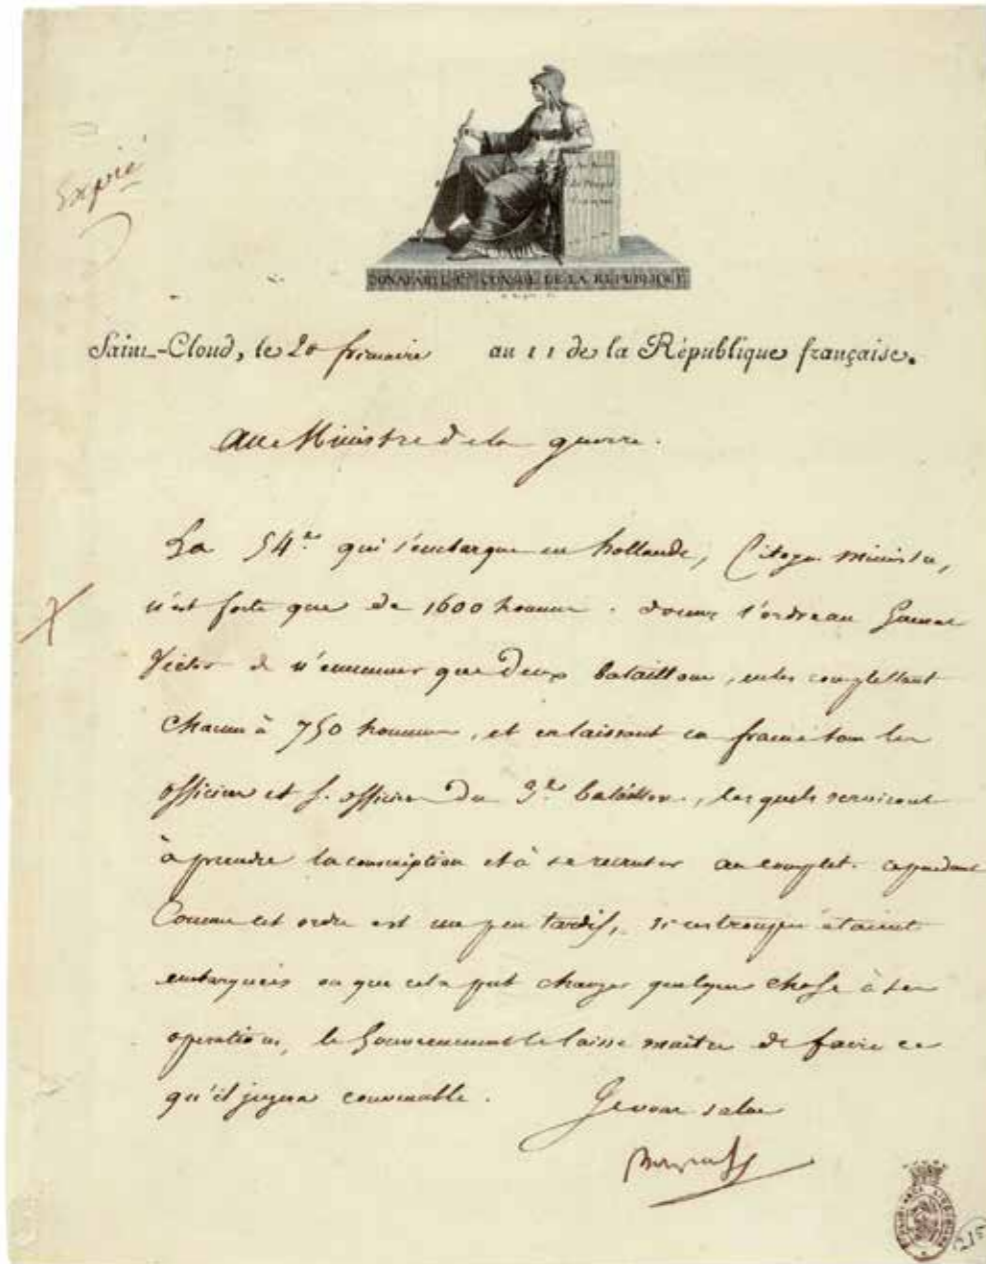 Expié
Au Nom
du Peuple
Français
BONAPARTE 1er CONSUL DE LA REPUBLIQUE
Saint-Cloud, le 20 frimaire an 11 de la République française.
Au Ministre de la guerre.
La 54e qui s'embarque en hollande, Citoyen ministre,
n'est forte que de 1600 hommes. donnez l'ordre au General
Victor de n'emmener que deux bataillons, en les complettant
chacun à 750 hommes, et en laissant en france tous les
officiers et s. officiers du 3e bataillon, lesquels serviront
à prendre la conscription et à se recruter au complet. cependant
Comme cet ordre est un peu tardif, si ces troupes étaient
embarquées ou que cela put changer quelque chose à ses
operations, le Gouvernement le laisse maitre de faire ce
qu'il jugera convenable. Je vous salue